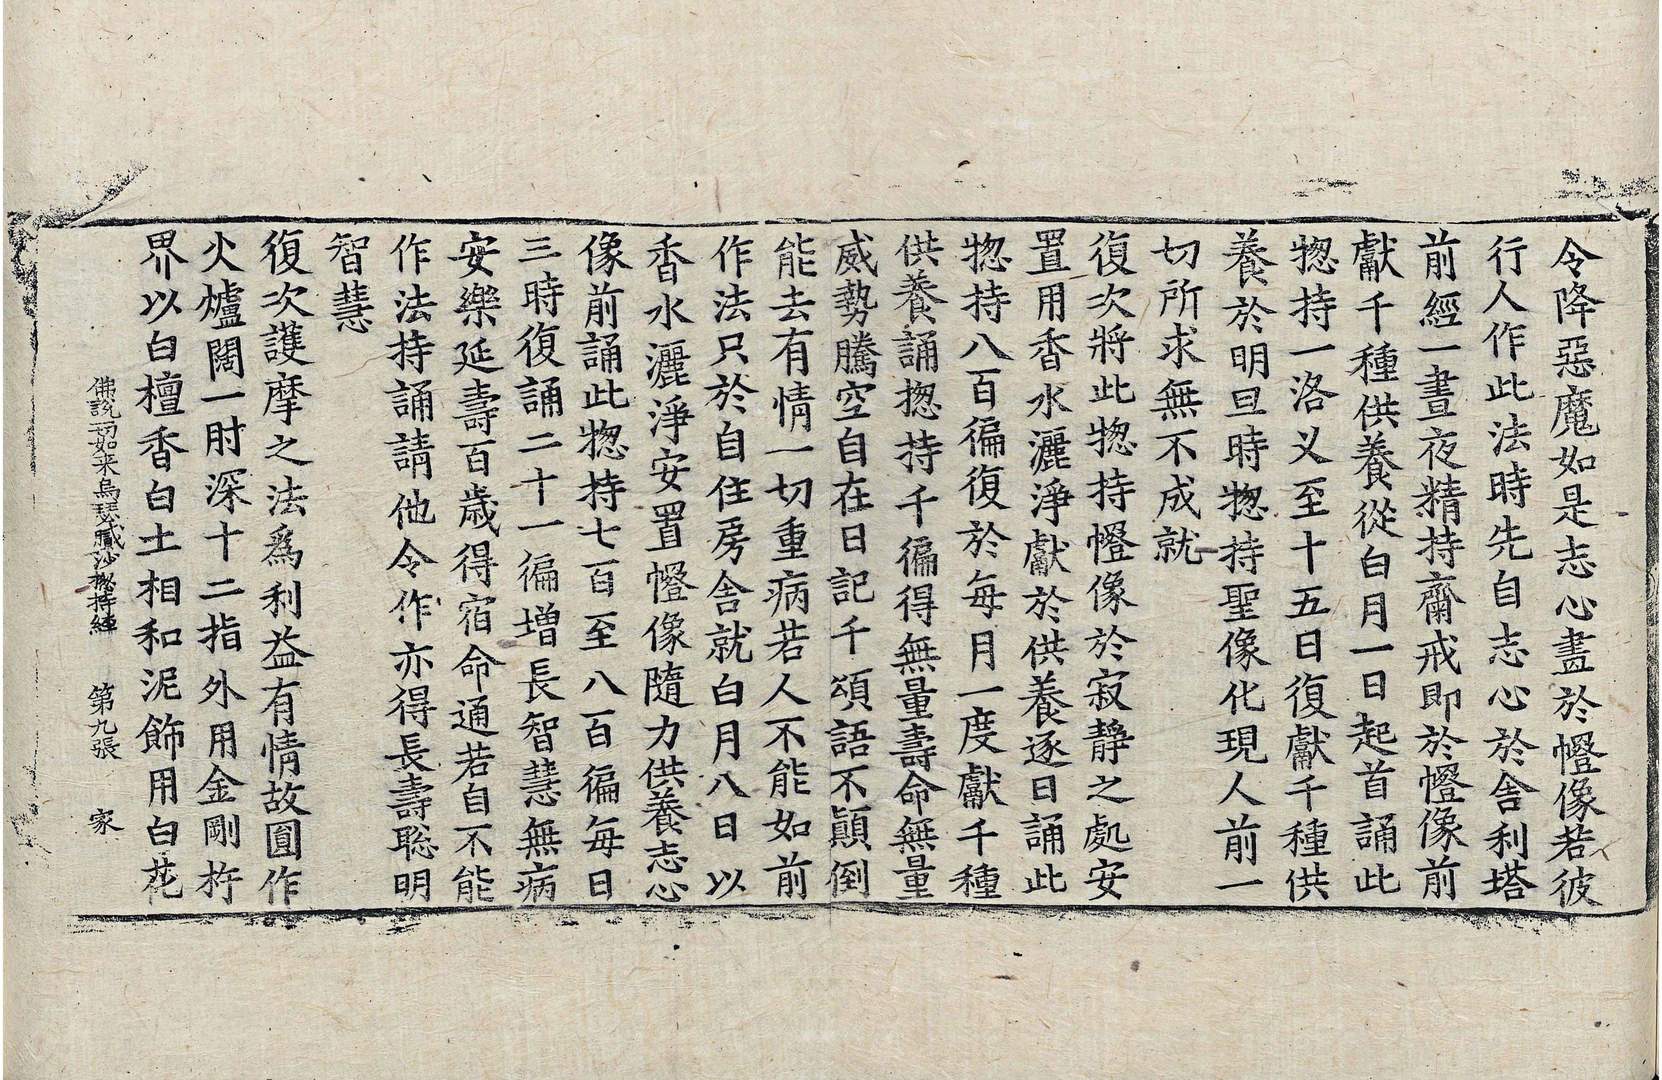 令降惡魔如是志心畫於㡧像若彼
行人作此法時先自志心於舍利塔
前經一晝夜精持齋戒即於㡧像前
獻千種供養從白月一日起首誦此
惣持一洛义至十五日復獻千種供
養於明旦時惣持聖像化現人前一
切所求無不成就
復次將此惣持㡧像於寂靜之處安
置用香水灑淨獻於供養逐日誦此
惣持八百徧復於每月一度獻千種
供養誦惣持千徧得無量壽命無量
威勢騰空自在日記千頌語不顛倒
能去有情一切重病若人不能如前
作法只於自住房舍就白月八日以
香水灑淨安置㡧像隨力供養志心
像前誦此惣持七百至八百徧每日
三時復誦二十一徧增長智慧無病
安樂延壽百歲得宿命通若自不能
作法持誦請他令作亦得長壽聡明
智慧
復次護摩之法爲利益有情故圓作
火爐闊一肘深十二指外用金剛杵
界以白檀香白土相和泥飾用白花
佛說一切如来烏瑟膩沙惣持經 第九張 家